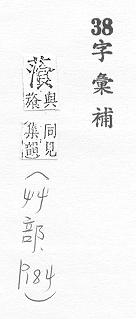 38字彙補
與
同見集韻
(艸部、P.184)